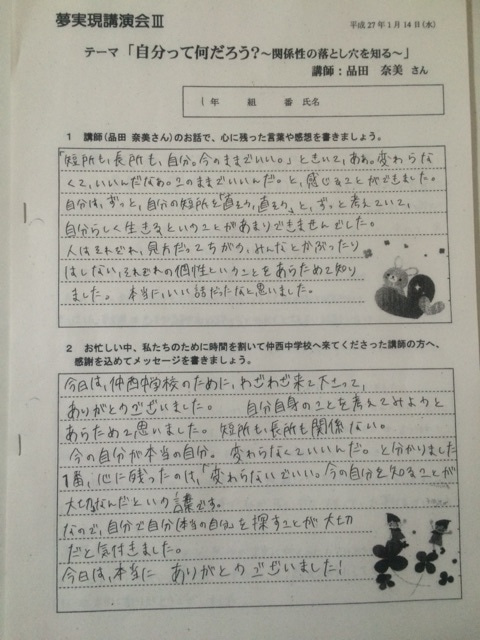 夢実現講演会Ⅲ
平成27年1月14日(水)
テーマ「自分って何だろう?～関係性の落とし穴を知る～」
講師:品田 奈美 さん
1年 組 番 氏名
1 講師(品田 奈美さん)のお話で、心に残った言葉や感想を書きましょう。
「短所も、長所も、自分。今のままでいい。」ときいて、ああ。変わらな
くて、いいんだなぁ。このままでいいんだ。と、感じることができました。
自分は、ずっと、自分の短所を「直そう、直そう」と、ずっと考えていて、
自分らしく生きるということがあまりできませんでした。
人はそれぞれ、見方だってちがう、みんなとかぶったり
はしない、それぞれの個性ということをあらためて知り
ました。 本当に、いい話だったなと思いました。
2 お忙しい中、私たちのために時間を割いて仲西中学校へ来てくださった講師の方へ、
感謝を込めてメッセージを書きましょう。
今日は、仲西中学校のために、わざわざ来て下さって、
ありがとうございました。 自分自身のことを考えてみようと
あらためて思いました。 短所も、長所も関係ない。
今の自分が本当の自分。 変わらなくていいんだ。 と分かりました
1番、心に残ったのは、「変わらないでいい。今の自分を知ることが
大切なんだという言葉です。
なので、自分で自分(本当の自分)を探すことが大切
だと気付きました。
今日は、本当に ありがとうございました!